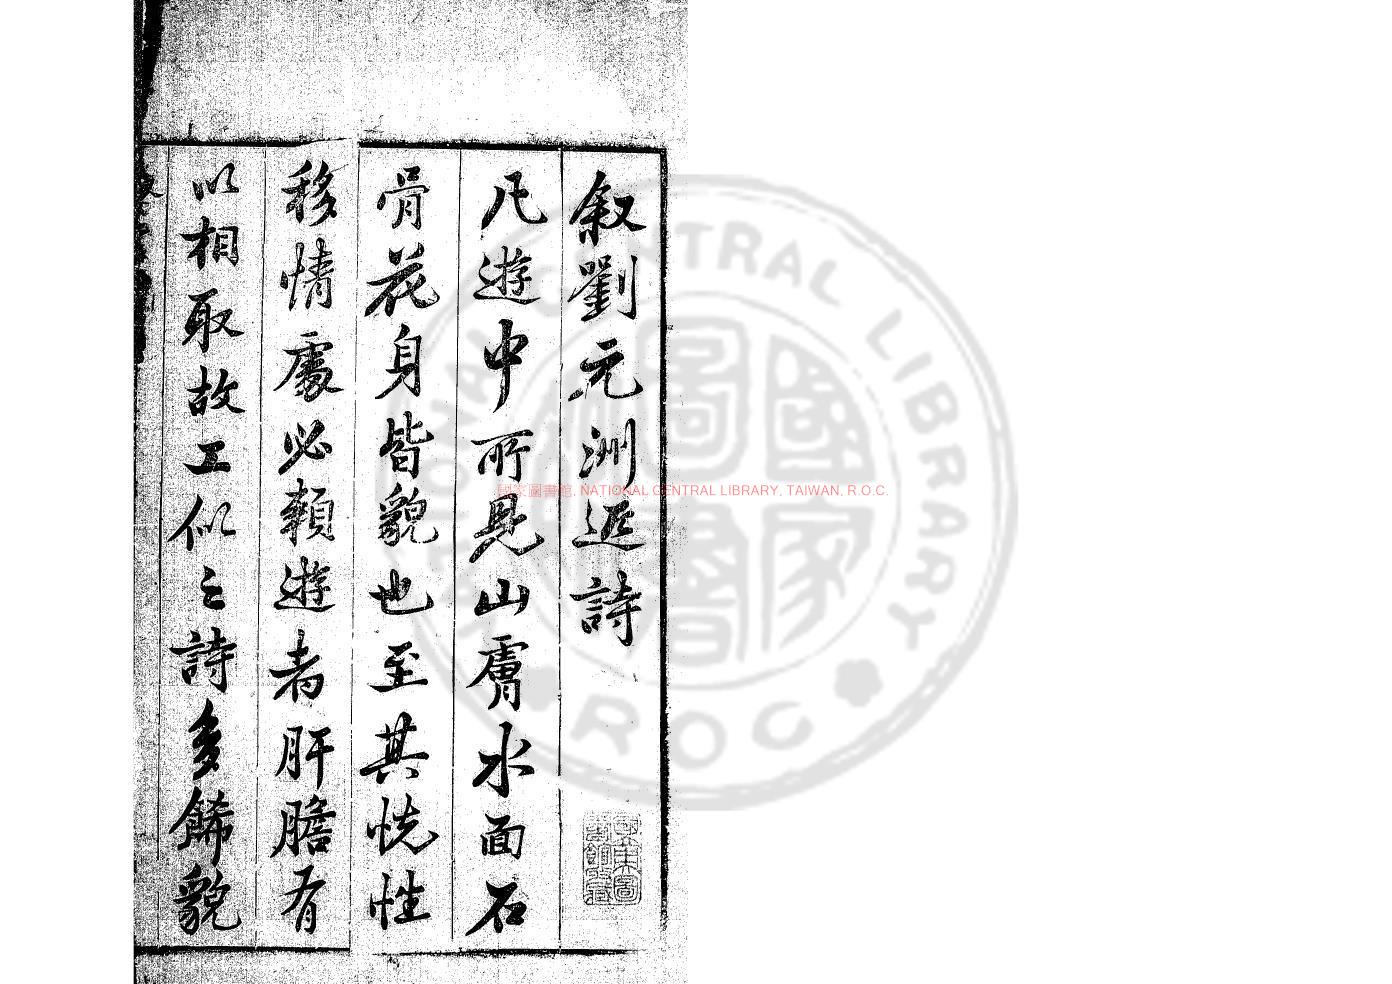 叙劉元洲遊詩
凡遊中所見山膚水面石
骨花身皆貌也至其恍性
移情處必賴遊者肝膽有
以相取故工似之詩多飾貌
國家圖書館, NATIONAL CENTRAL LIBRARY, TAIWAN, R.O.C.
NATIONAL CENTRAL LIBRARY
ROC
國家圖書